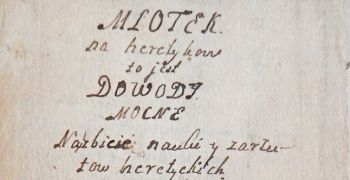 MLOTEK.
na heretykow
to jest
DOWODY.
MOCNE
Na zbicie nauki y zarzu-
tow heretyckich